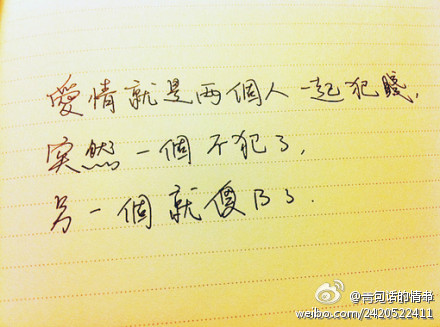 愛情就是两個人一起犯賤,
突然一個不犯了,
另一個就傻B了.
@一句话的情书
weibo.com/2420522411